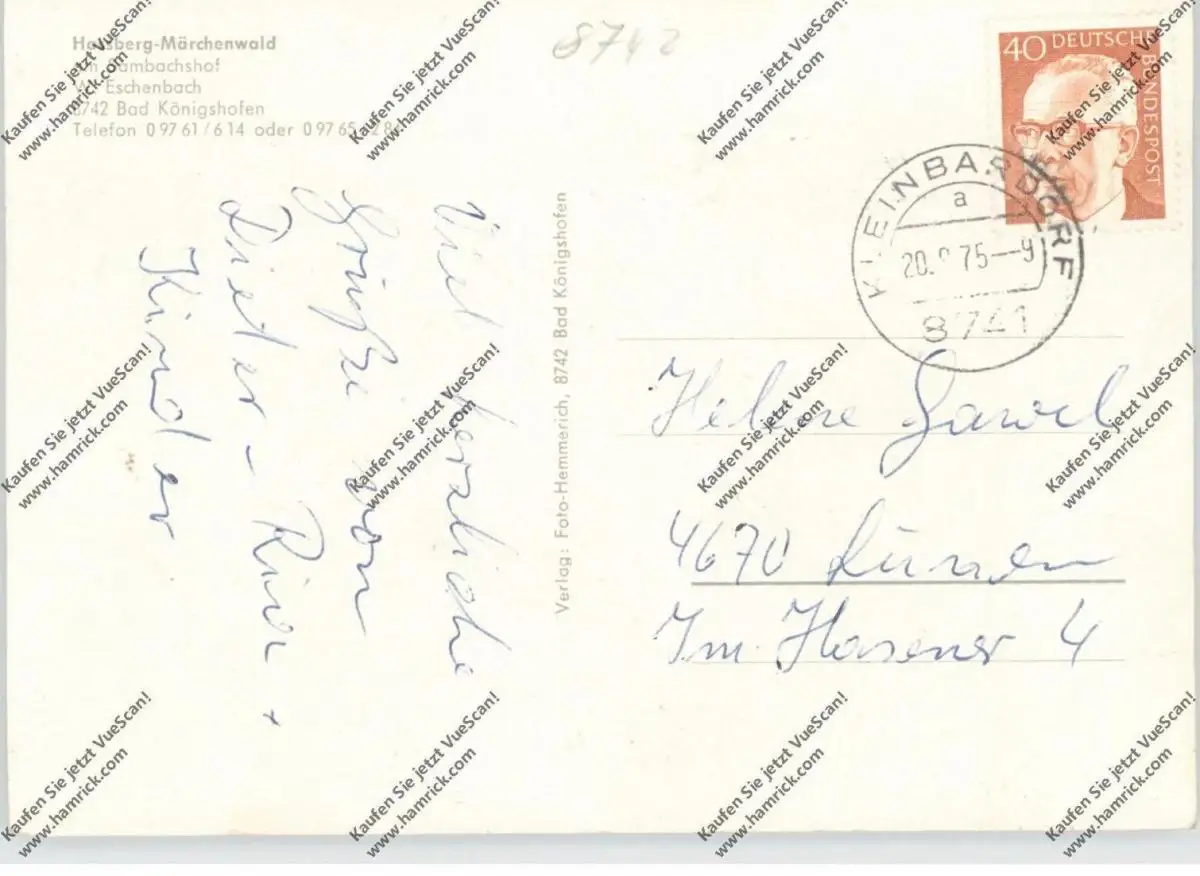 Hausberg-Märchenwald
Am Sambachshof
Eschenbach
8742 Bad Königshofen
Telefon 0 97 61 / 6 14 oder 0 97 65
8742
40 DEUTSCHE BUNDESPOST
KLEINBARDORF
a
20. 75—9
8741
Viel herzliche
Grüße von
Dieter – Rita +
Kinder
Verlag: Foto-Hemmerich, 8742 Bad Königshofen
Helene
4670 Lünen
Im Hasener 4
Kaufen Sie jetzt VueScan!
www.hamrick.com
Kaufen Sie jetzt VueScan!
www.hamrick.com
Kaufen Sie jetzt VueScan!
www.hamrick.com
Kaufen Sie jetzt VueScan!
www.hamrick.com
Kaufen Sie jetzt VueScan!
www.hamrick.com
Kaufen Sie jetzt VueScan!
www.hamrick.com
Kaufen Sie jetzt VueScan!
www.hamrick.com
Kaufen Sie jetzt VueScan!
www.hamrick.com
Kaufen Sie jetzt VueScan!
www.hamrick.com
Kaufen Sie jetzt VueScan!
www.hamrick.com
Kaufen Sie jetzt VueScan!
www.hamrick.com
Kaufen Sie jetzt VueScan!
www.hamrick.com